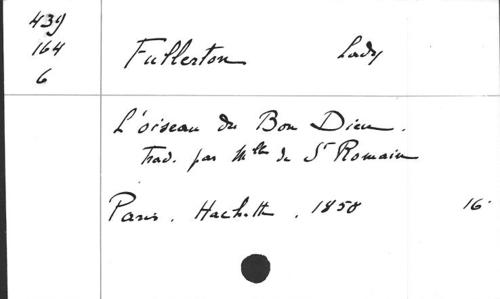 439
164
6
Fullerton Lady
L'oiseau du Bon Dieu.
Trad. par Mlle de St Romain
Paris. Hachette. 1858 16°